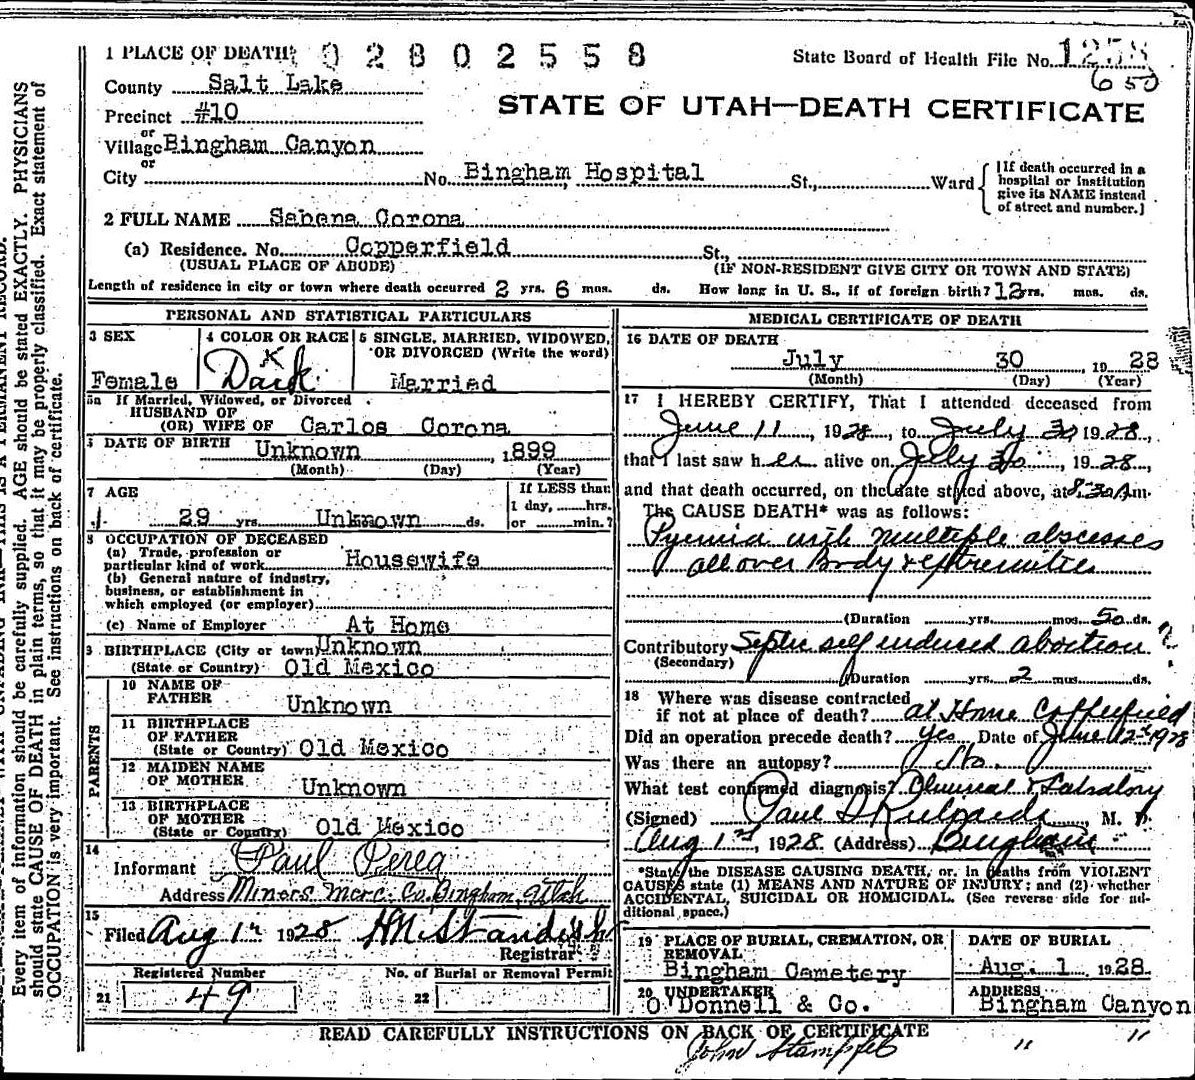 1 PLACE OF DEATH: 0 2 8 0 2 5 5 8
State Board of Health File No. 1258
650
County Salt Lake
STATE OF UTAH—DEATH CERTIFICATE
Precinct #10
or
Village Bingham Canyon
or
City No. Bingham Hospital St., Ward
[If death occurred in a
hospital or institution
give its NAME instead
of street and number.]
2 FULL NAME Sabena Corona
(a) Residence. No. Copperfield St.,
(USUAL PLACE OF ABODE) (IF NON-RESIDENT GIVE CITY OR TOWN AND STATE)
Length of residence in city or town where death occurred 2 yrs. 6 mos. ds. How long in U. S., if of foreign birth? 12 yrs. mos. ds.
PERSONAL AND STATISTICAL PARTICULARS
3 SEX
Female
4 COLOR OR RACE
X
Dark
5 SINGLE, MARRIED, WIDOWED,
OR DIVORCED (Write the word)
Married
5a If Married, Widowed, or Divorced
HUSBAND OF
(OR) WIFE OF Carlos Corona
DATE OF BIRTH Unknown , 1899
(Month) (Day) (Year)
7 AGE
29 yrs. Unknown ds.
If LESS than
1 day, hrs.
or min.?
8 OCCUPATION OF DECEASED
(a) Trade, profession or
particular kind of work Housewife
(b) General nature of industry,
business, or establishment in
which employed (or employer)
(c) Name of Employer At Home
9 BIRTHPLACE (City or town) Unknown
(State or Country) Old Mexico
PARENTS
10 NAME OF
FATHER Unknown
11 BIRTHPLACE
OF FATHER
(State or Country) Old Mexico
12 MAIDEN NAME
OF MOTHER Unknown
13 BIRTHPLACE
OF MOTHER
(State or Country) Old Mexico
14
Informant Paul Perea
Address Miners Merc. Co. Bingham, Utah
15
Filed Aug 1st 1928 H N Standish
Registrar
Registered Number
21 49
No. of Burial or Removal Permit
22
MEDICAL CERTIFICATE OF DEATH
16 DATE OF DEATH
July 30 , 19 28
(Month) (Day) (Year)
17 I HEREBY CERTIFY, That I attended deceased from
June 11, 1928, to July 30 1928,
that I last saw her alive on July 30, 1928,
and that death occurred, on the date stated above, at 8:30 A m.
The CAUSE DEATH* was as follows:
Pyemia with multiple abscesses
all over Body & extremities
(Duration yrs. mos. 50 ds.
Contributory Septic self induced abortion
(Secondary)
(Duration yrs. 2 mos. ds.
18 Where was disease contracted
if not at place of death? at Home Copperfield
Did an operation precede death? yes Date of June 12th 1928
Was there an autopsy? No.
What test confirmed diagnosis? Clinical & Labratory
(Signed) Paul S Richards, M. D.
Aug 1st, 1928 (Address) Bingham
*State the DISEASE CAUSING DEATH, or, in deaths from VIOLENT
CAUSES state (1) MEANS AND NATURE OF INJURY; and (2) whether
ACCIDENTAL, SUICIDAL OR HOMICIDAL. (See reverse side for ad-
ditional space.)
19 PLACE OF BURIAL, CREMATION, OR
REMOVAL
Bingham Cemetery
DATE OF BURIAL
Aug. 1 1928
20 UNDERTAKER
O'Donnell & Co.
ADDRESS
Bingham Canyon
READ CAREFULLY INSTRUCTIONS ON BACK OF CERTIFICATE
John Stampfel " "
Every item of information should be carefully supplied. AGE should be stated EXACTLY. PHYSICIANS
should state CAUSE OF DEATH in plain terms, so that it may be properly classified. Exact statement of
OCCUPATION is very important. See instructions on back of certificate.